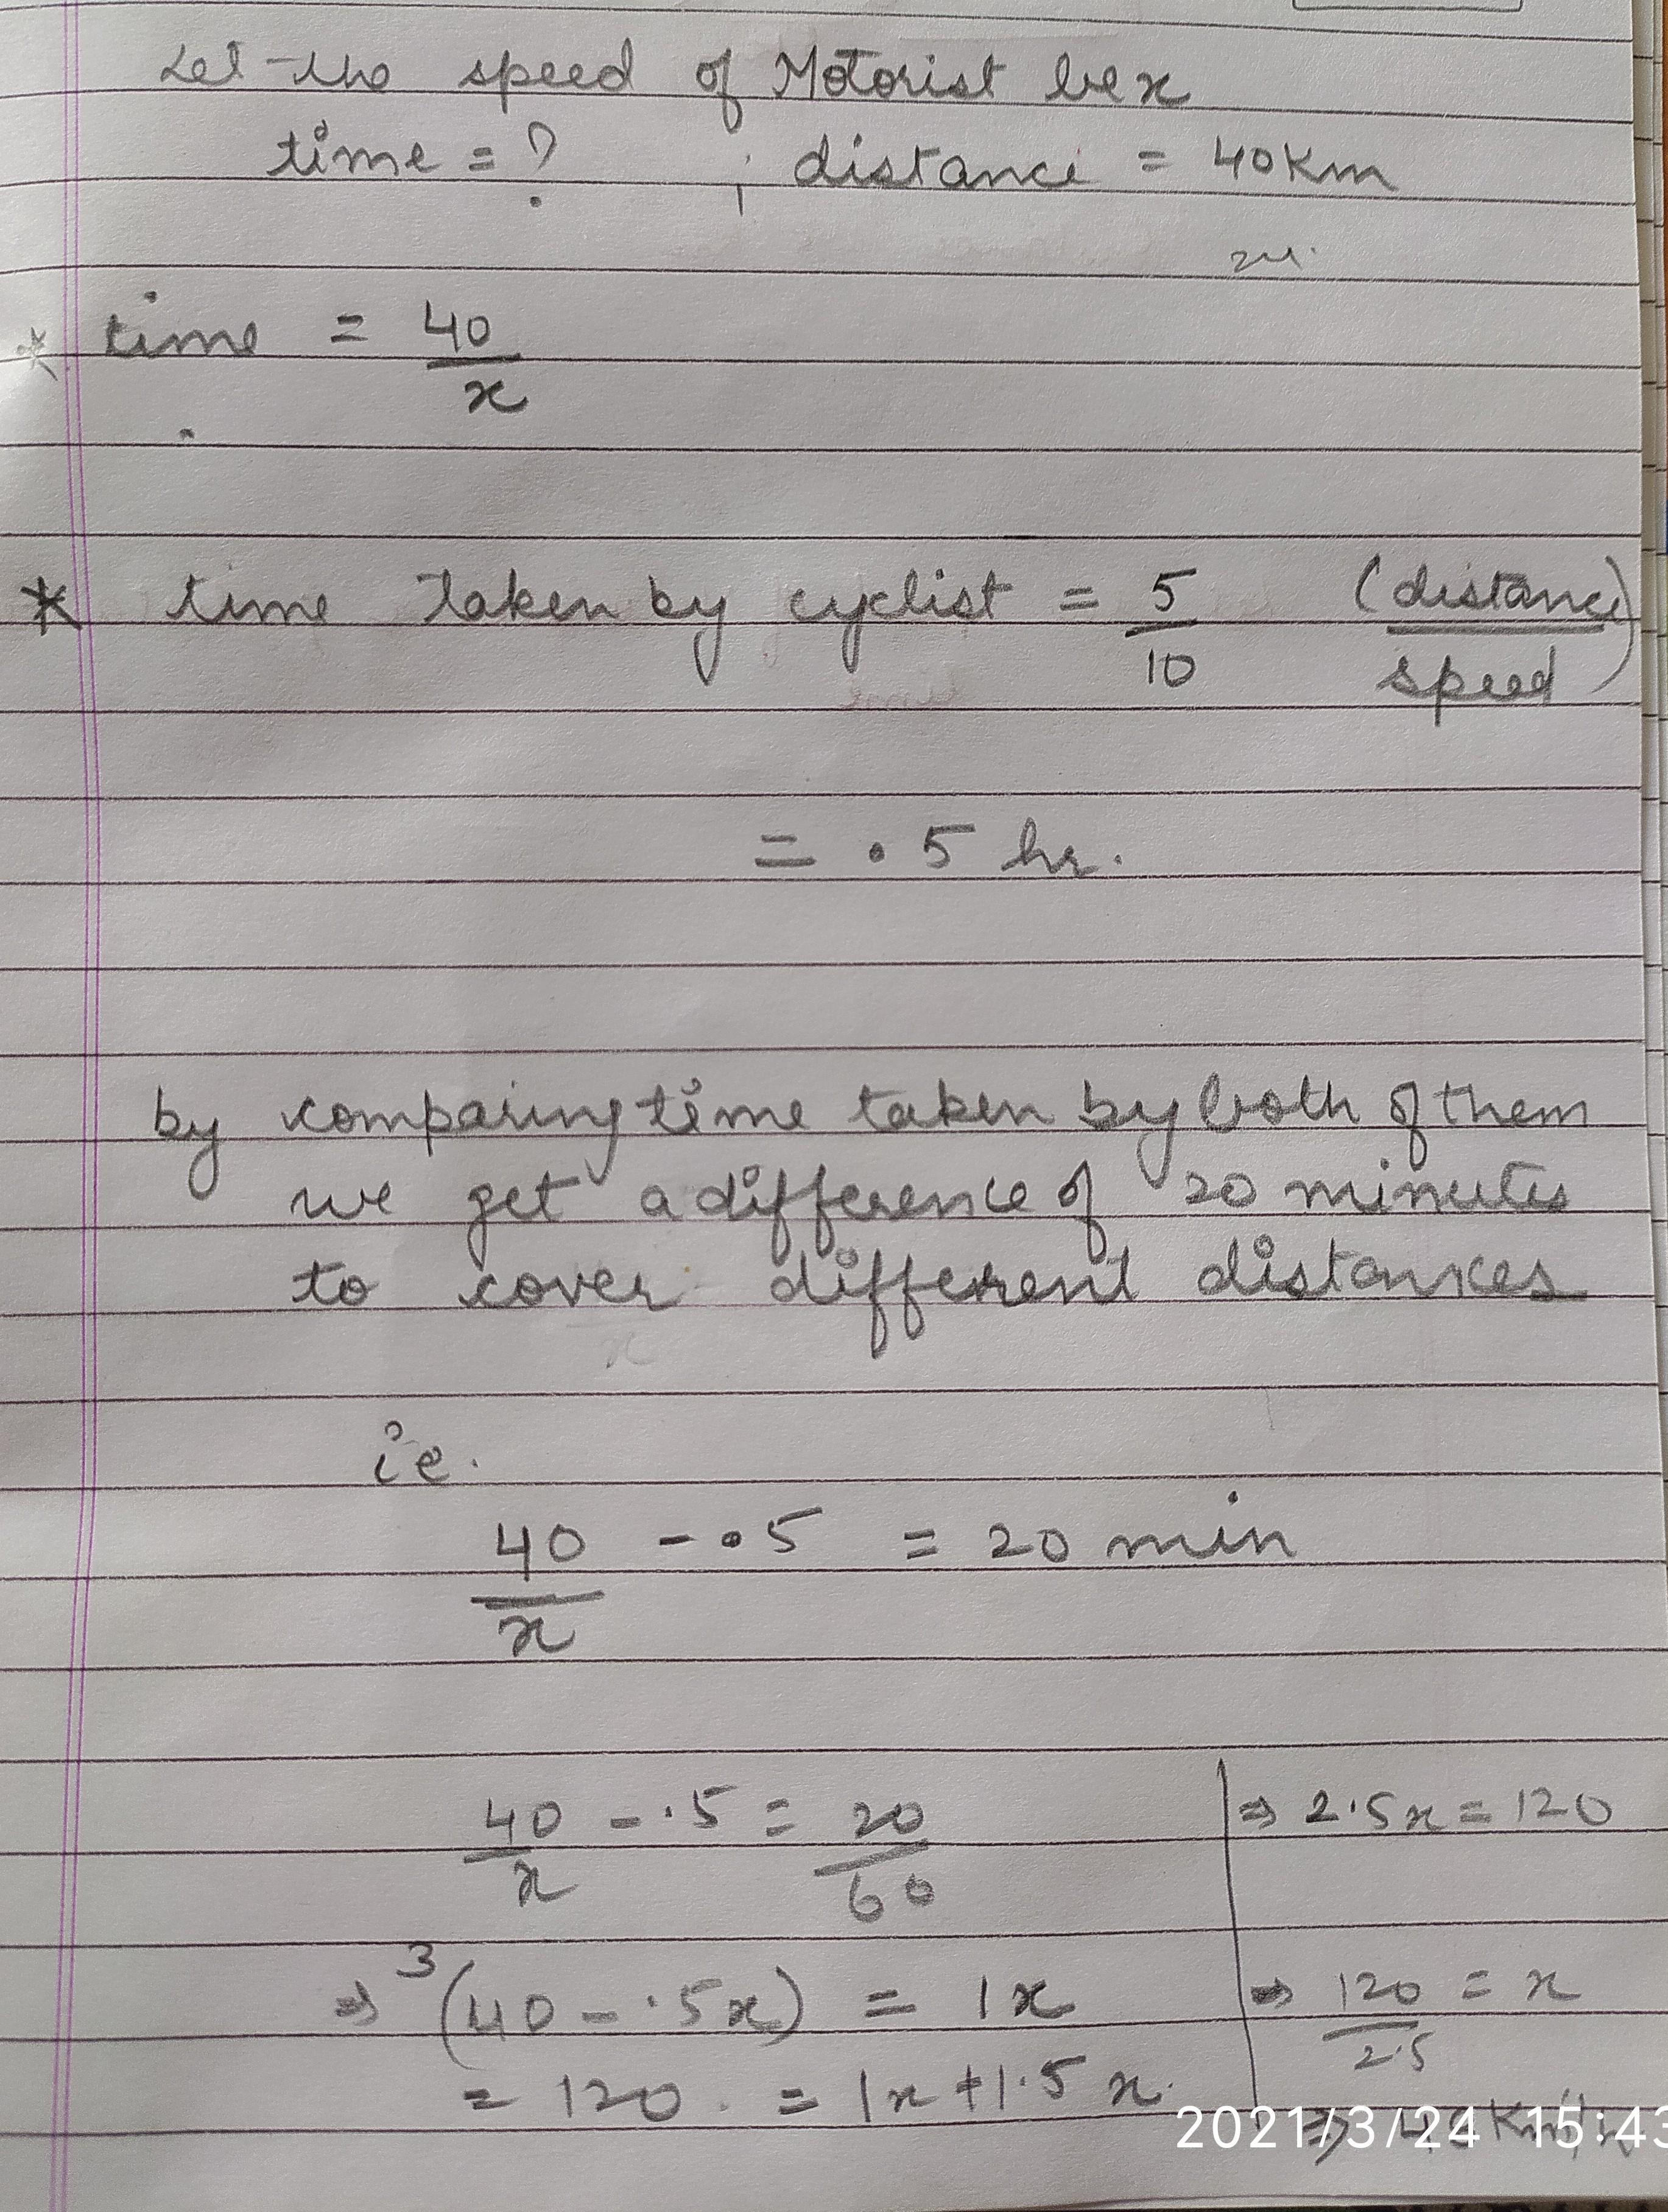 Let the speed of Motorist be x
time = ? , distance = 40 Km
* time = 40/x
* time taken by cyclist = 5/10 (distance/speed)
= .5 hr.
by comparing time taken by both of them
we get a difference of 20 minutes
to cover different distances
ie.
40/x - .5 = 20 min
40/x - .5 = 20/60
⇒ 3(40 - .5x) = 1x
= 120 = 1x + 1.5x.
⇒ 2.5x = 120
⇒ 120/2.5 = x
⇒ 48 Km/h
2021/3/24 15:43